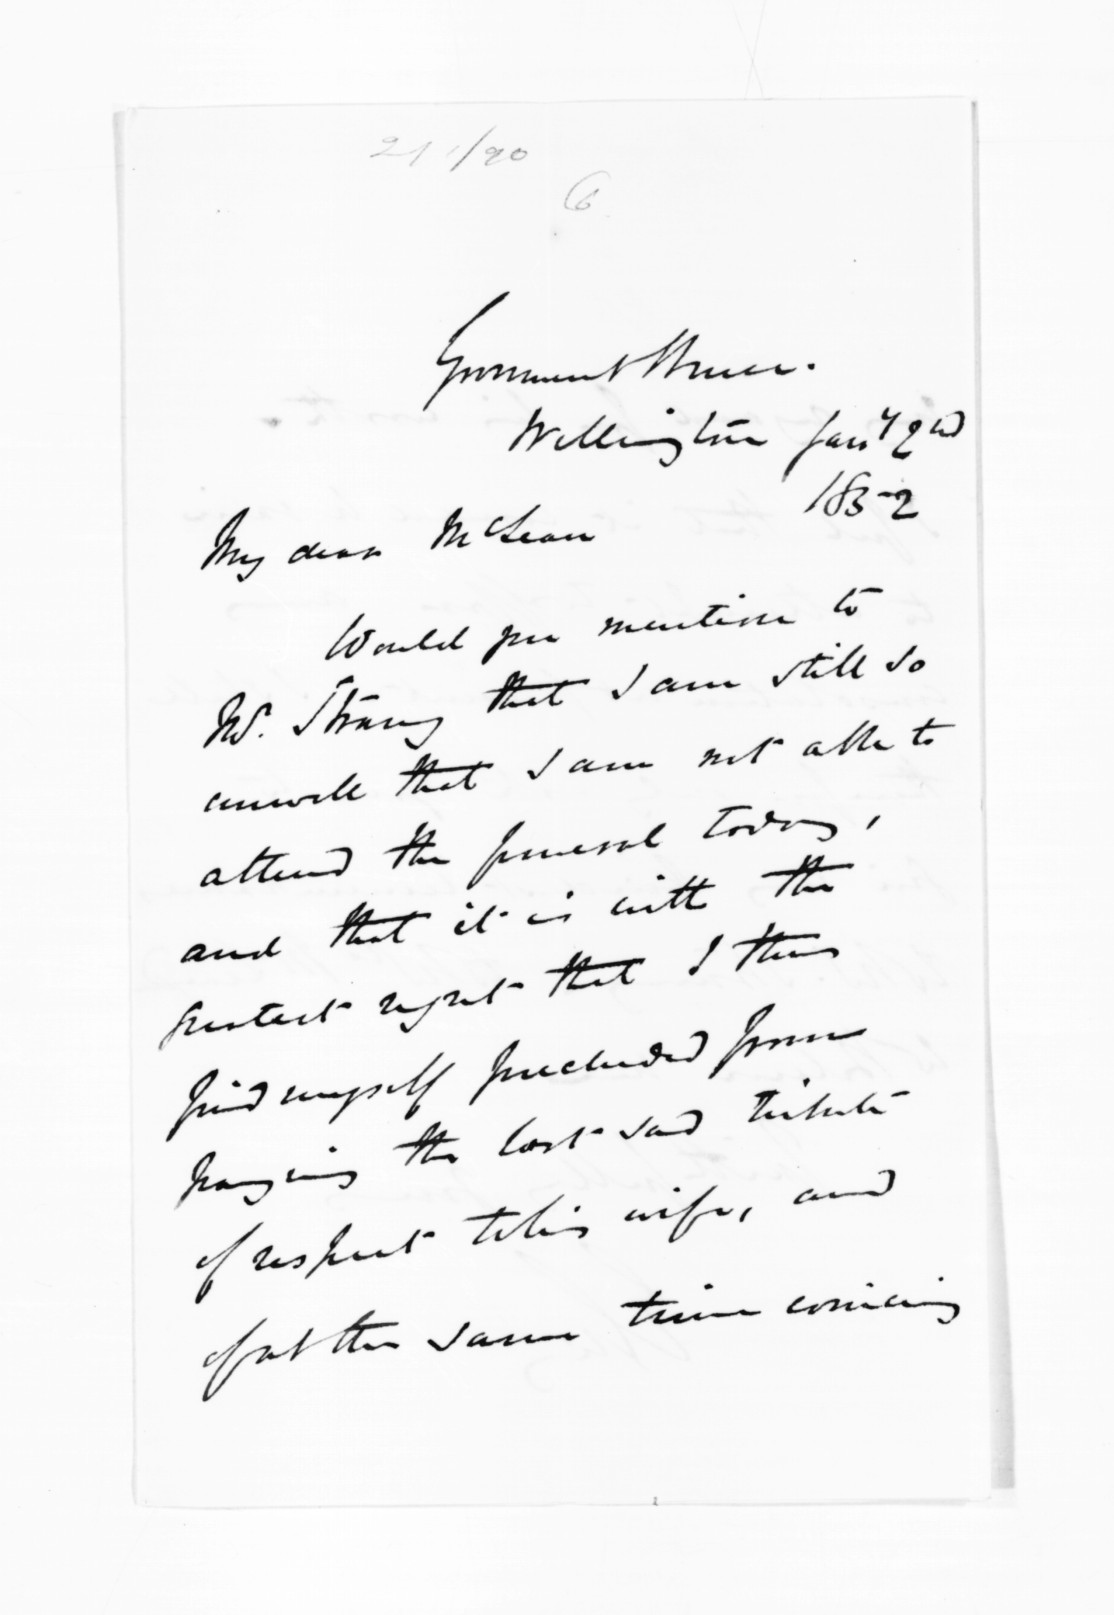 21 1/90
6
Government House.
Wellington Jany 2nd
1852
My dear McLean
Would you mention to
Mr. Strang that I am still so
unwell that I am not able to
attend the funeral today,
and that it is with the
greatest regret that I thus
find myself precluded from
paying the last sad tribute
of respect to his wife, and
of at the same time